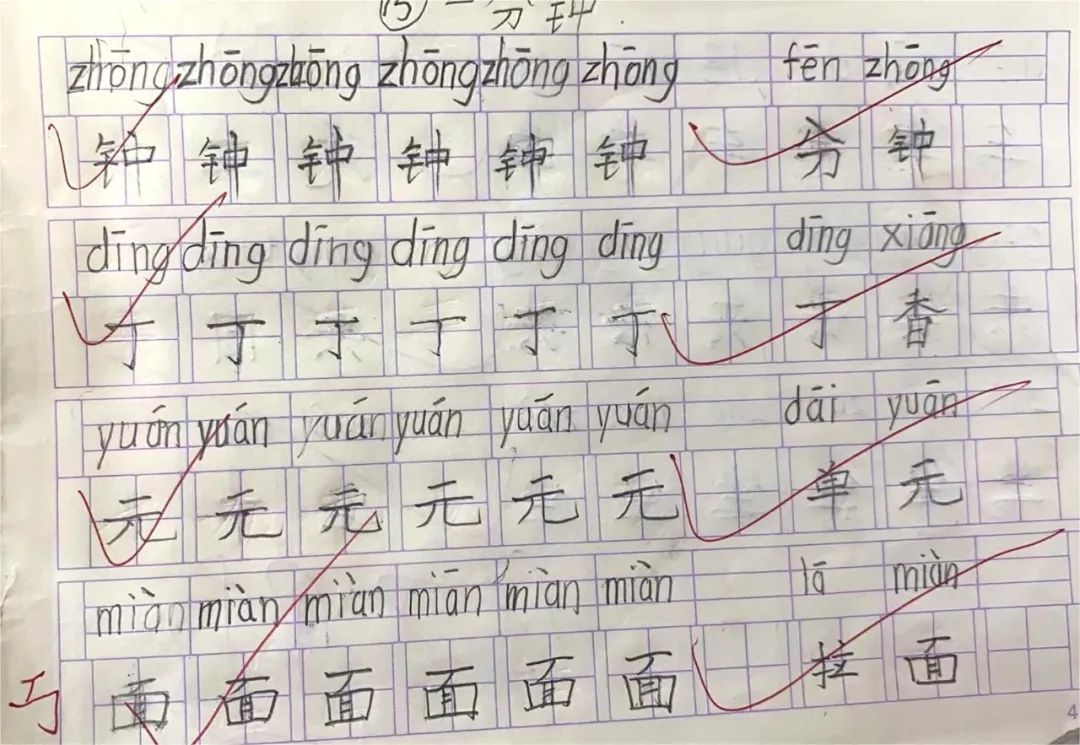 ⑮ 一分钟
zhōng zhōng zhōng zhōng zhōng zhōng fēn zhōng
钟 钟 钟 钟 钟 钟 分 钟
dīng dīng dīng dīng dīng dīng dīng xiāng
丁 丁 丁 丁 丁 丁 丁 香
yuán yuán yuán yuán yuān yuán dāi yuān
元 元 元 元 元 元 单 元
miàn miàn miàn miān miàn miàn lā miàn
面 面 面 面 面 面 拉 面
4